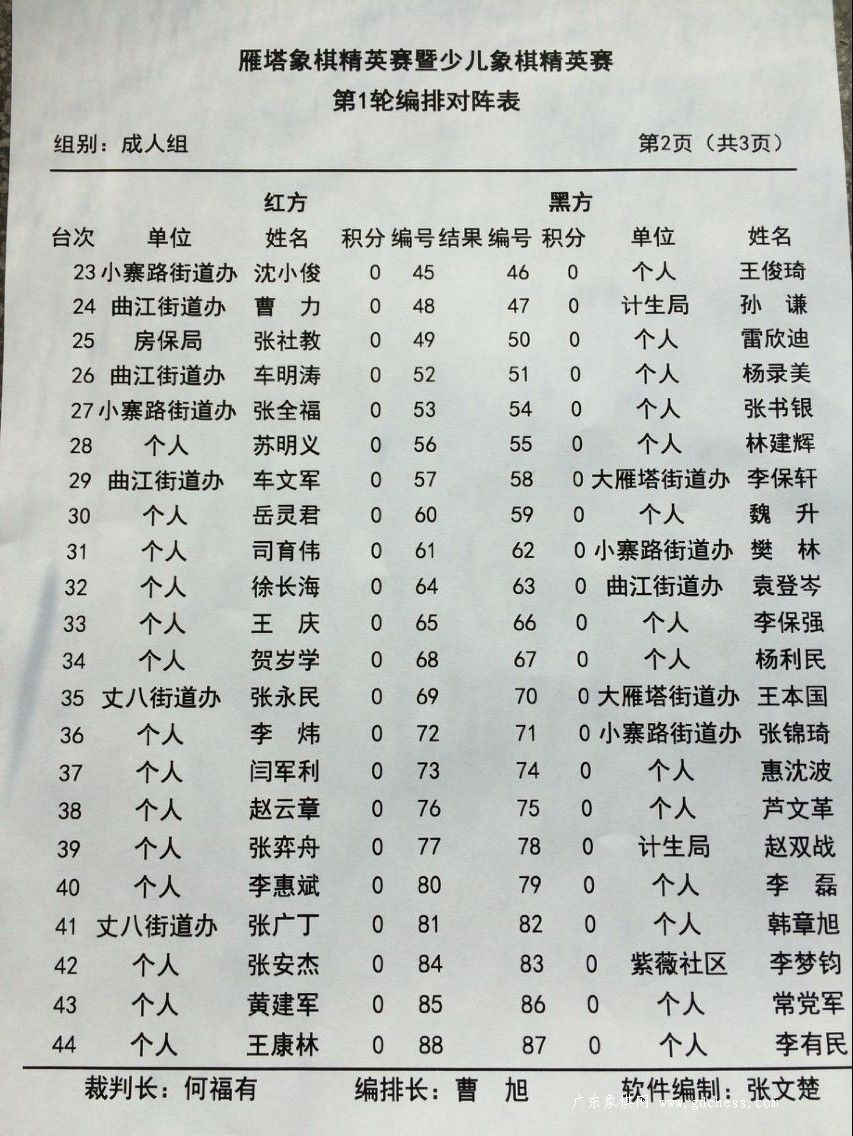 雁塔象棋精英赛暨少儿象棋精英赛
第1轮编排对阵表
组别：成人组 第2页（共3页）
红方 黑方
台次 单位 姓名 积分 编号 结果 编号 积分 单位 姓名
23 小寨路街道办 沈小俊 0 45 46 0 个人 王俊琦
24 曲江街道办 曹 力 0 48 47 0 计生局 孙 谦
25 房保局 张社教 0 49 50 0 个人 雷欣迪
26 曲江街道办 车明涛 0 52 51 0 个人 杨录美
27 小寨路街道办 张全福 0 53 54 0 个人 张书银
28 个人 苏明义 0 56 55 0 个人 林建辉
29 曲江街道办 车文军 0 57 58 0 大雁塔街道办 李保轩
30 个人 岳灵君 0 60 59 0 个人 魏 升
31 个人 司育伟 0 61 62 0 小寨路街道办 樊 林
32 个人 徐长海 0 64 63 0 曲江街道办 袁登岑
33 个人 王 庆 0 65 66 0 个人 李保强
34 个人 贺岁学 0 68 67 0 个人 杨利民
35 丈八街道办 张永民 0 69 70 0 大雁塔街道办 王本国
36 个人 李 炜 0 72 71 0 小寨路街道办 张锦琦
37 个人 闫军利 0 73 74 0 个人 惠沈波
38 个人 赵云章 0 76 75 0 个人 芦文革
39 个人 张弈舟 0 77 78 0 计生局 赵双战
40 个人 李惠斌 0 80 79 0 个人 李 磊
41 丈八街道办 张广丁 0 81 82 0 个人 韩章旭
42 个人 张安杰 0 84 83 0 紫薇社区 李梦钧
43 个人 黄建军 0 85 86 0 个人 常党军
44 个人 王康林 0 88 87 0 个人 李有民
裁判长：何福有 编排长：曹 旭 软件编制：张文楚
广东象棋网 www.gdchess.com